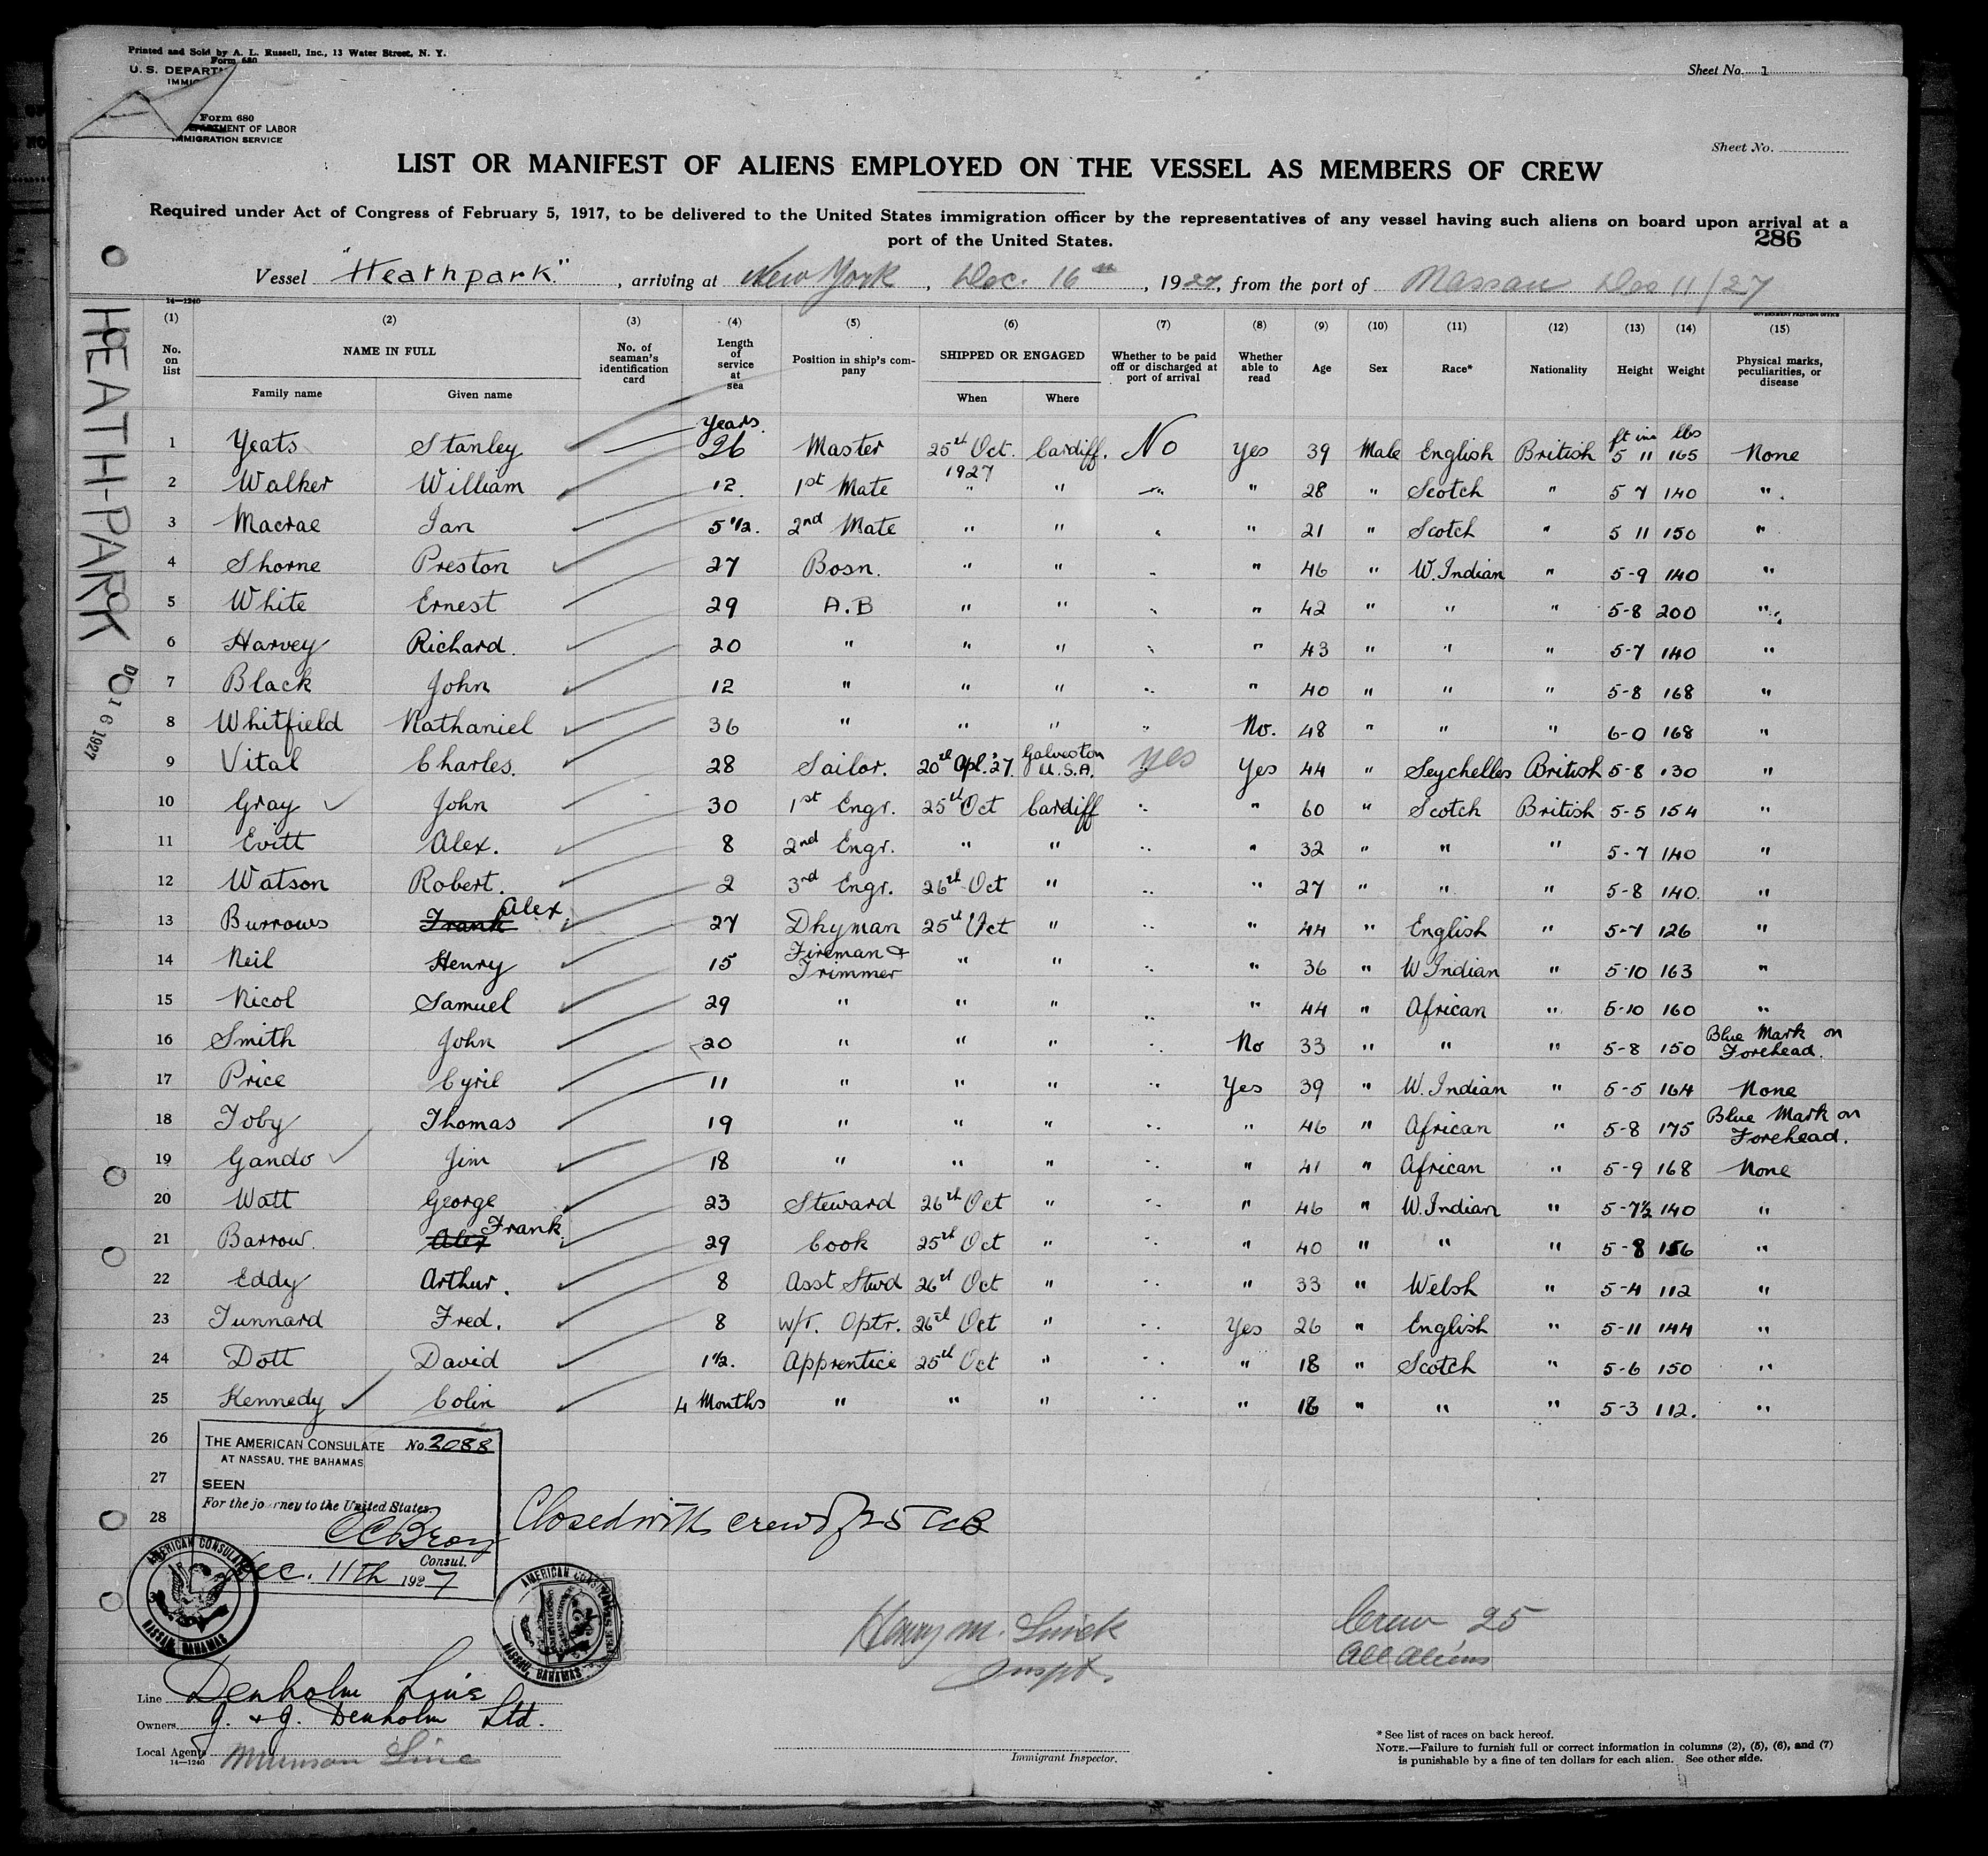 Printed and Sold by A. L. Russell, Inc., 13 Water Street, N. Y.
Form 680
U. S. DEPART
IMMIG
Sheet No. 1
Form 680
DEPARTMENT OF LABOR
IMMIGRATION SERVICE
Sheet No.
LIST OR MANIFEST OF ALIENS EMPLOYED ON THE VESSEL AS MEMBERS OF CREW
Required under Act of Congress of February 5, 1917, to be delivered to the United States immigration officer by the representatives of any vessel having such aliens on board upon arrival at a
port of the United States.
286
Vessel "Heathpark", arriving at New York, Dec. 16th, 1927, from the port of Nassau Dec 11/27
14—1240
GOVERNMENT PRINTING OFFICE
HEATH-PARK
DC 16 1927
(1) (2) (3) (4) (5) (6) (7) (8) (9) (10) (11) (12) (13) (14) (15)
No. on list NAME IN FULL No. of seaman's identification card Length of service at sea Position in ship's company SHIPPED OR ENGAGED Whether to be paid off or discharged at port of arrival Whether able to read Age Sex Race* Nationality Height Weight Physical marks, peculiarities, or disease
Family name Given name When Where
years. ft ins lbs
1 Yeats Stanley — 26 Master 25th Oct. 1927 Cardiff. No Yes 39 Male English British 5 11 165 None
2 Walker William 12. 1st Mate " " " " 28 " Scotch " 5 7 140 "
3 Macrae Ian 5 1/2. 2nd Mate " " " " 21 " Scotch " 5 11 150 "
4 Shorne Preston 27 Bosn. " " " " 46 " W. Indian " 5-9 140 "
5 White Ernest 29 A.B " " " " 42 " " " 5-8 200 "
6 Harvey Richard. 20 " " " " " 43 " " " 5-7 140 "
7 Black John 12 " " " " " 40 " " " 5-8 168 "
8 Whitfield Nathaniel 36 " " " " No. 48 " " " 6-0 168 "
9 Vital Charles. 28 Sailor. 20th Apl. '27. Galveston U.S.A. yes Yes 44 " Seychelles British 5-8 130 "
10 Gray John 30 1st Engr. 25th Oct Cardiff " " 60 " Scotch British 5-5 154 "
11 Evitt Alex. 8 2nd Engr. " " " " 32 " " " 5-7 140 "
12 Watson Robert. 2 3rd Engr. 26th Oct " " " 27 " " " 5-8 140. "
13 Burrows Frank Alex. 27 Dkyman 25th Oct " " " 44 " English " 5-7 126 "
14 Neil Henry 15 Fireman & Trimmer " " " " 36 " W Indian " 5-10 163 "
15 Nicol Samuel 29 " " " " " 44 " African " 5-10 160 "
16 Smith John 20 " " " " No 33 " " " 5-8 150 Blue Mark on Forehead.
17 Price Cyril 11 " " " " Yes 39 " W. Indian " 5-5 164 None
18 Toby Thomas 19 " " " " " 46 " African " 5-8 175 Blue Mark on Forehead.
19 Gando Jim 18 " " " " " 41 " African " 5-9 168 None
20 Watt George 23 Steward 26th Oct " " " 46 " W. Indian " 5-7½ 140 "
21 Barrow. Alex Frank. 29 Cook 25th Oct " " " 40 " " " 5-8 156 "
22 Eddy Arthur. 8 Asst Stwd 26th Oct " " " 33 " Welsh " 5-4 112 "
23 Tunnard Fred. 8 W/T. Optr. 26th Oct " " Yes 26 " English " 5-11 144 "
24 Dott David 1 1/2. Apprentice 25th Oct " " " 18 " Scotch " 5-6 150 "
25 Kennedy Colin 4 Months " " " " " 16 " " " 5-3 112. "
26
27
28
THE AMERICAN CONSULATE No. 2088
AT NASSAU, THE BAHAMAS
SEEN
For the journey to the United States
Consul.
Dec. 11th 1927
AMERICAN CONSULATE
NASSAU, BAHAMAS
AMERICAN CONSULATE
NASSAU, BAHAMAS
Closed with crew of 25
Henry M.
Inspt.
Crew 25
All aliens
Line Denholm Line
Owners J. & J. Denholm Ltd.
Local Agents Munson Line
14—1240
Immigrant Inspector.
* See list of races on back hereof.
NOTE.—Failure to furnish full or correct information in columns (2), (5), (6), and (7)
is punishable by a fine of ten dollars for each alien. See other side.